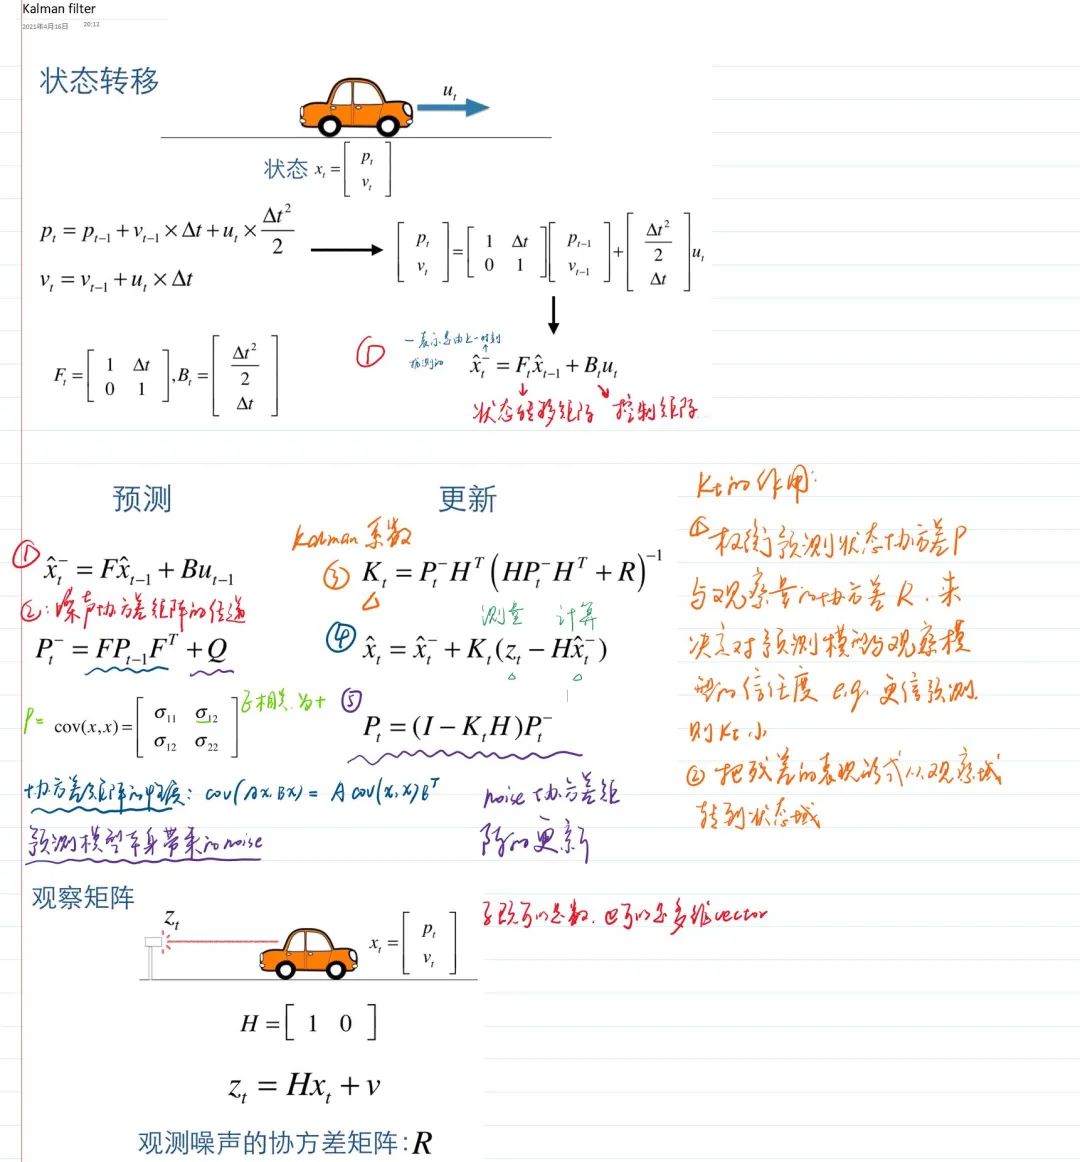 Kalman filter
2021年4月16日 20:12
状态转移
u_t
状态 x_t = [ p_t v_t ]
p_t = p_{t-1} + v_{t-1} × Δt + u_t × Δt²/2
v_t = v_{t-1} + u_t × Δt
[ p_t v_t ] = [ 1 Δt 0 1 ] [ p_{t-1} v_{t-1} ] + [ Δt²/2 Δt ] u_t
F_t = [ 1 Δt 0 1 ], B_t = [ Δt²/2 Δt ]
① 一表示是由上一时刻
推测的
x̂_t^- = F_t x̂_{t-1} + B_t u_t
状态转移矩阵 控制矩阵
预测
① x̂_t^- = Fx̂_{t-1} + Bu_{t-1}
②: 噪声协方差矩阵的传递
P_t^- = FP_{t-1}F^T + Q
P = cov(x,x) = [ σ_11 σ_12 σ_12 σ_22 ] 相关
协方差矩阵的性质: cov(Ax, Bx) = A cov(x,x) B^T
预测模型本身带来的noise
更新
Kalman 系数
③ K_t = P_t^- H^T (HP_t^- H^T + R)^{-1}
测量 计算
④ x̂_t = x̂_t^- + K_t(z_t − Hx̂_t^-)
⑤ P_t = (I − K_t H)P_t^-
noise 协方差矩
阵的更新
Kt的作用:
① 权衡预测状态协方差P
与观察量的协方差R, 来
决定对预测模型与观察模
型的信任度 e.g. 更信预测,
则Kt小
② 把残差的表现形式从观察域
转到状态域
观察矩阵
z_t
x_t = [ p_t v_t ]
既可以是数, 也可以是多维vector
H = [ 1 0 ]
z_t = Hx_t + v
观测噪声的协方差矩阵: R